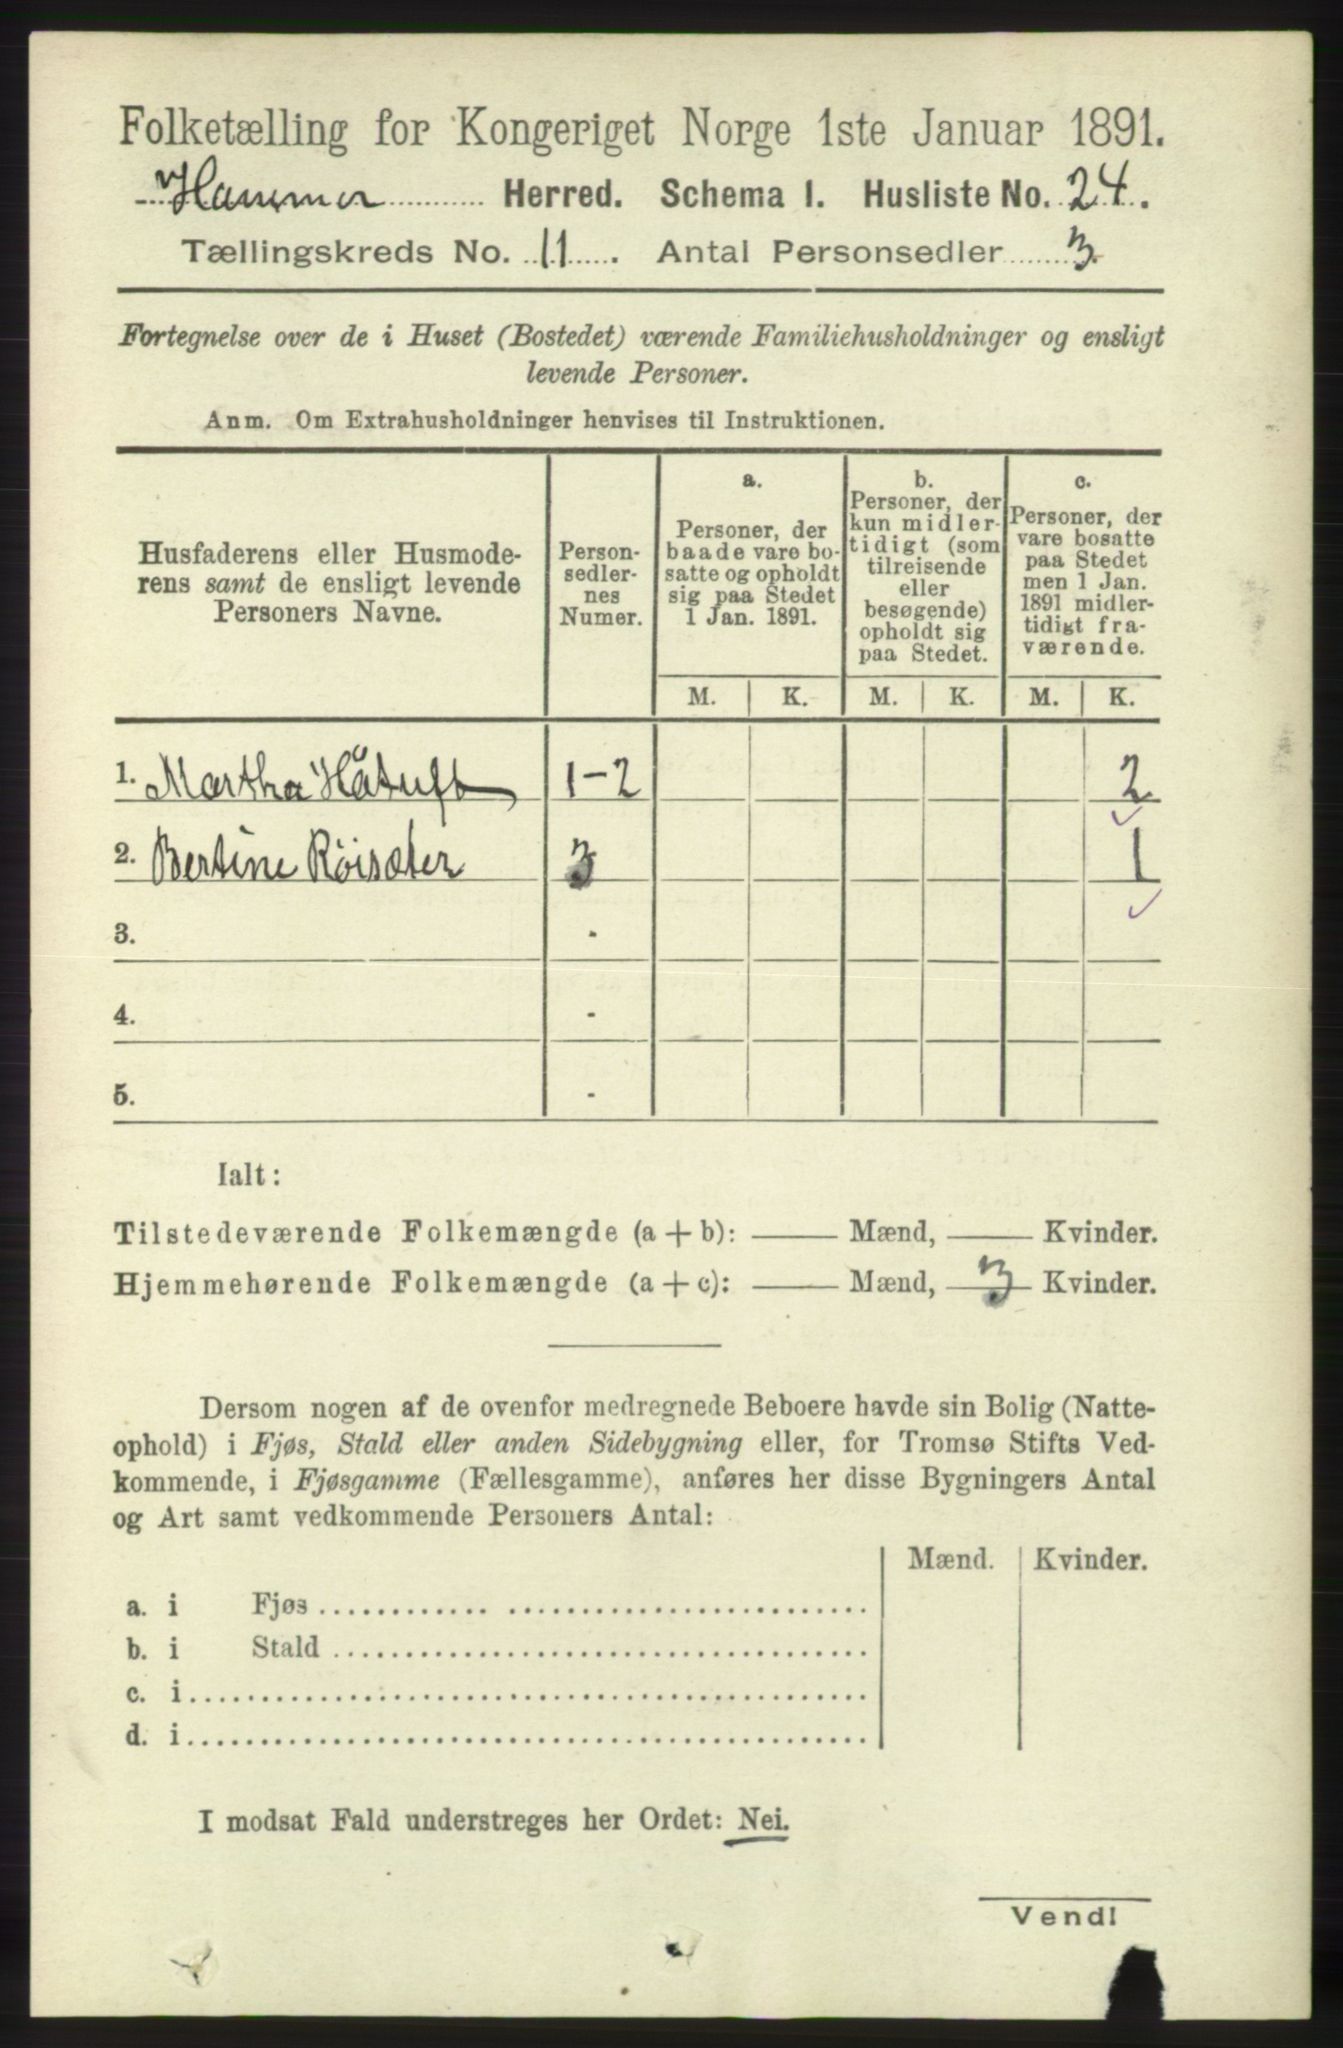 Folketælling for Kongeriget Norge 1ste Januar 1891.
Hammer Herred. Schema 1. Husliste No. 24.
Tællingskreds No. 11. Antal Personsedler 3.
Fortegnelse over de i Huset (Bostedet) værende Familiehusholdninger og ensligt
levende Personer.
Anm. Om Extrahusholdninger henvises til Instruktionen.
Husfaderens eller Husmode-
rens samt de ensligt levende
Personers Navne.
Person-
sedler-
nes
Numer.
a.
Personer, der
baade vare bo-
satte og opholdt
sig paa Stedet
1 Jan. 1891.
b.
Personer, der
kun midler-
tidigt (som
tilreisende
eller
besøgende)
opholdt sig
paa Stedet.
c.
Personer, der
vare bosatte
paa Stedet
men 1 Jan.
1891 midler-
tidigt fra-
værende.
M. K. M. K. M. K.
1. Martha Håtuft 1-2 2
2. Bertine Röisæter 3 1
3. -
4. -
5. -
Ialt:
Tilstedeværende Folkemængde (a + b): Mænd, Kvinder.
Hjemmehørende Folkemængde (a + c): Mænd, 3 Kvinder.
Dersom nogen af de ovenfor medregnede Beboere havde sin Bolig (Natte-
ophold) i Fjøs, Stald eller anden Sidebygning eller, for Tromsø Stifts Ved-
kommende, i Fjøsgamme (Fællesgamme), anføres her disse Bygningers Antal
og Art samt vedkommende Personers Antal:
Mænd. Kvinder.
a. i Fjøs
b. i Stald
c. i
d. i
I modsat Fald understreges her Ordet: Nei.
Vend!